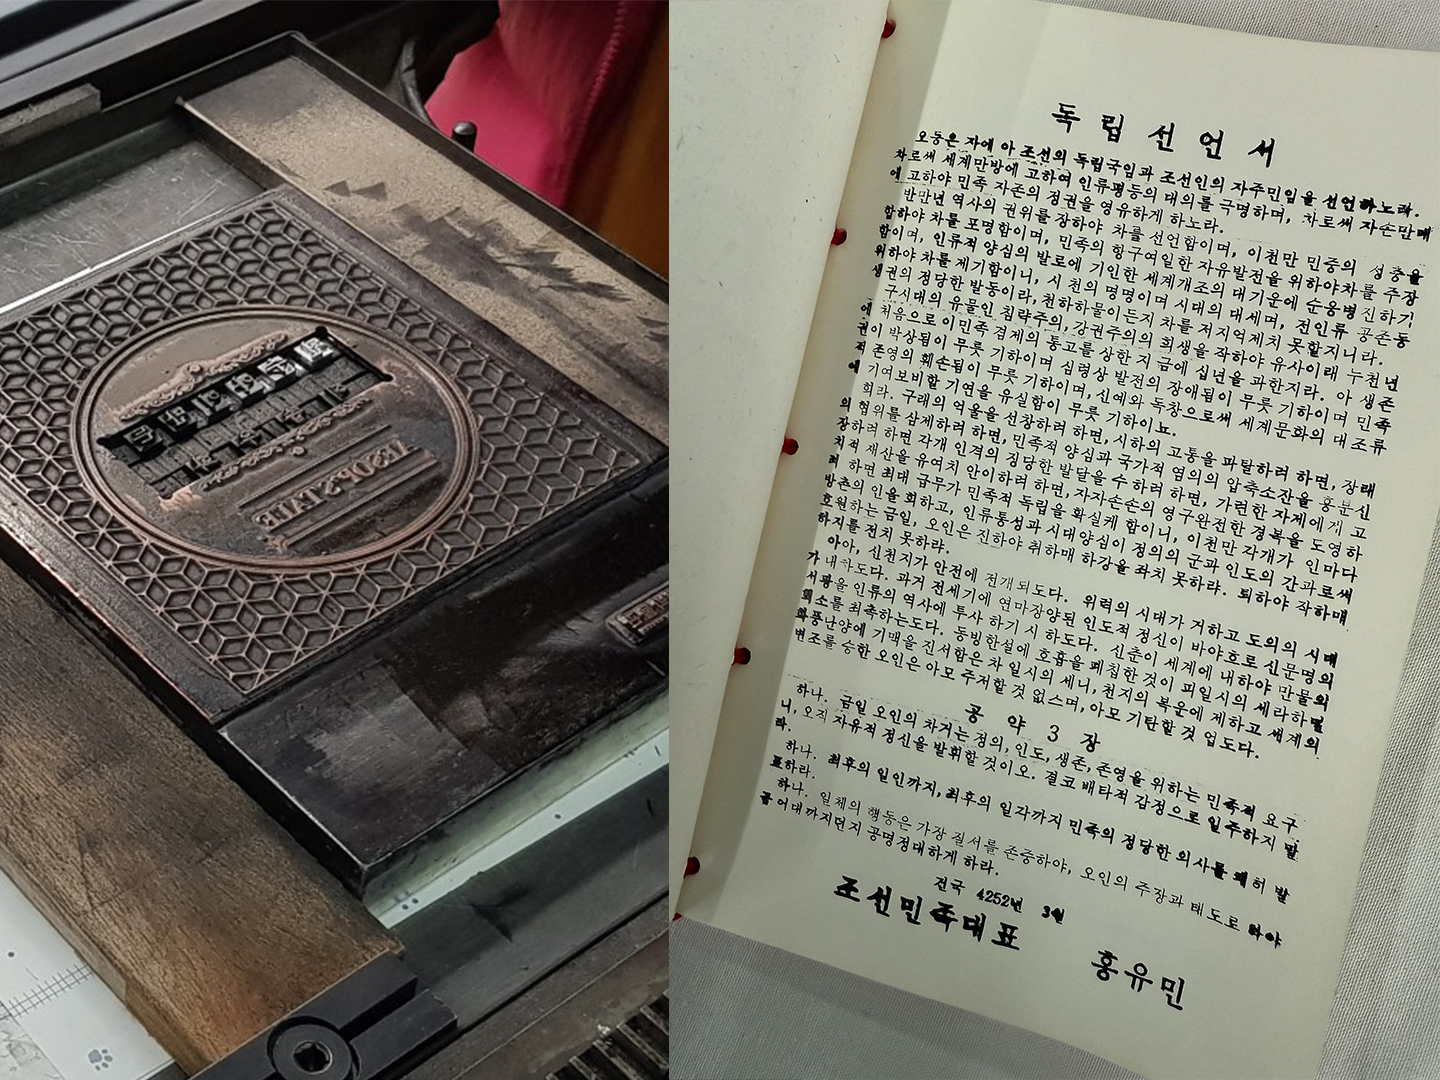 독립선언서
오등은 자에 아 조선의 독립국임과 조선인의 자주민임을 선언하노라.
차로써 세계만방에 고하여 인류평등의 대의를 극명하며, 차로써 자손만대
에 고하야 민족 자존의 정권을 영유하게 하노라.
반만년 역사의 권위를 장하야 차를 선언함이며, 이천만 민중의 성충을
합하야 차를 포명함이며, 민족의 항구여일한 자유발전을 위하야차를 주장
함이며, 인류적 양심의 발로에 기인한 세계개조의 대기운에 순응병진하기
위하야 차를 제기함이니, 시 천의 명명이며 시대의 대세며, 전인류 공존동
생권의 정당한 발동이라, 천하하물이든지 차를 저지억제치 못할지니라.
구시대의 유물인 침략주의, 강권주의의 희생을 작하야 유사이래 누천년
에 처음으로 이민족 겸제의 통고를 상한 지 금에 십년을 과한지라. 아 생존
권이 박상됨이 무릇 기하이며 심령상 발전의 장애됨이 무릇 기하이며 민족
적 존영의 훼손됨이 무릇 기하이며, 신예와 독창으로써 세계문화의 대조류
에 기여보비할 기연을 유실함이 무릇 기하이뇨.
희라. 구래의 억울을 선창하려 하면, 시하의 고통을 파탈하려 하면, 장래
의 협위를 삼제하려 하면, 민족적 양심과 국가적 염의의 압축소잔을 흥분신
장하려 하면 각개 인격의 정당한 발달을 수 하려 하면, 가련한 자제에게 고
치적 재산을 유여치 안이하려 하면, 자자손손의 영구완전한 경복을 도영하
려 하면 최대 급무가 민족적 독립을 확실케 함이니, 이천만 각개가 인마다
방촌의 인을 회하고, 인류통성과 시대양심이 정의의 군과 인도의 간과로써
호원하는 금일, 오인은 진하야 취하매 하강을 좌치 못하랴. 퇴하야 작하매
하지를 전치 못하랴.
아아, 신천지가 안전에 전개되도다. 위력의 시대가 거하고 도의의 시대
가 내하도다. 과거 전세기에 연마장양된 인도적 정신이 바야흐로 신문명의
서광을 인류의 역사에 투사 하기 시 하도다. 신춘이 세계에 내하야 만물의
회소를 최촉하는도다. 동빙한설에 호흡을 폐칩한 것이 피일시의 세라하면
화풍난양에 기맥을 진서함은 차일시의 세니, 천지의 복운에 제하고 세계의
변조를 승한 오인은 아모 주저할 것 없스며, 아모 기탄할 것 업도다.
공 약 3 장
하나. 금일 오인의 차거는 정의, 인도, 생존, 존영을 위하는 민족적 요구
니, 오직 자유적 정신을 발휘할 것이오. 결코 배타적 감정으로 일주하지 말
라.
하나. 최후의 일인까지, 최후의 일각까지 민족의 정당한 의사를 쾌히 발
표하라.
하나. 일체의 행동은 가장 질서를 존중하야, 오인의 주장과 태도로 하야
금 어대까지던지 공명정대하게 하라.
건국 4252년 3월
조선민족대표
홍유민